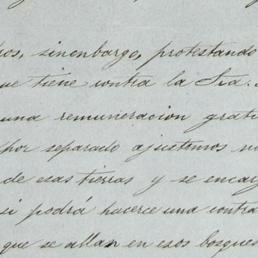 sinenbargo, protestando
tiene contra la Sra.
una remuneracion grati
por separado ajustemos
de esas tierras y se encar
si podrá hacerce una contra
que se allan en esos bosques